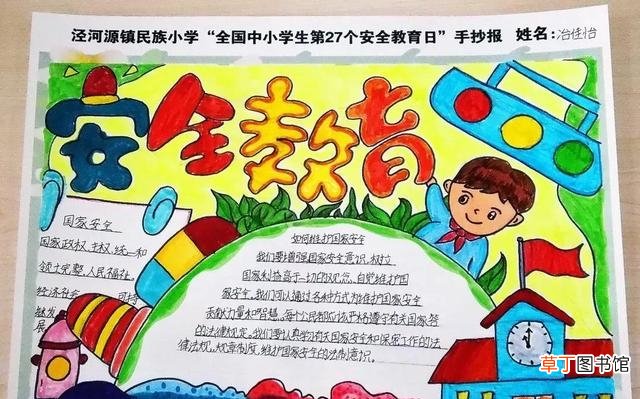 泾河源镇民族小学“全国中小学生第27个安全教育日”手抄报 姓名:冶佳怡
安全教育
国家安全
国家政权、主权、统一和
领土完整、人民福祉、
经济社会 可持
续发
展
如何维护国家安全
我们要增强国家安全意识,树立
国家利益高于一切的观念,自觉维护国
家安全。我们可以通过各种方式为维护国家安全
贡献力量和智慧。每个公民都应该严格遵守有关国家
的法律规定。我们要认真学习有关国家安全和保密工作的法
律法规、规章制度,维护国家安全的法制意识。
12
草丁图书馆